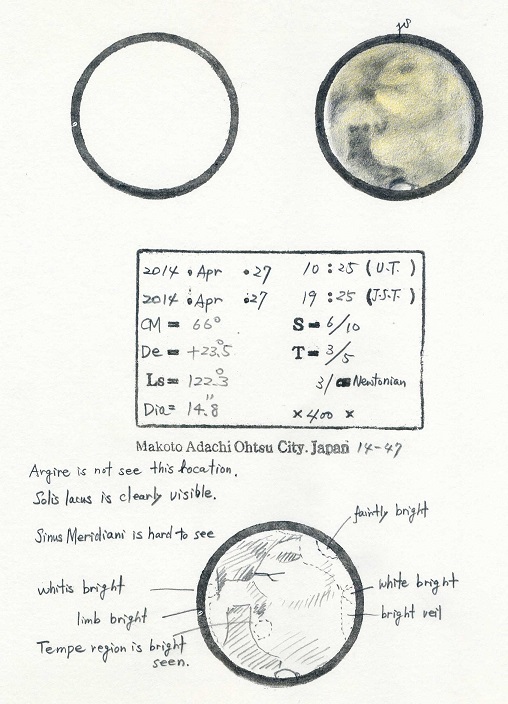 2014 . Apr . 27 10 : 25 (U.T.)
2014 . Apr . 27 19 : 25 (J.S.T.)
CM = 66° S = 6/10
De = +23.5° T = 3/5
Ls = 122.3° 31 Newtonian
Dia = 14.8" × 400 ×
Makoto Adachi Ohtsu City. Japan 14-47
Argire is not see this location.
Solis lacus is clearly visible.
faintly bright
Sinus Meridiani is hard to see
whitis bright
white bright
limb bright
bright veil
Tempe region is bright
seen.